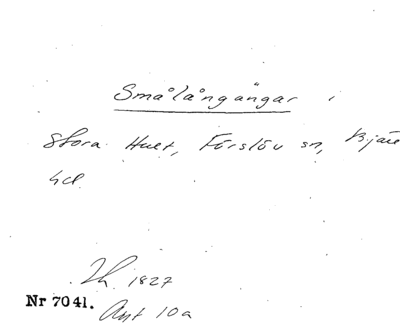 Smålångängar i
Stora Hult, Förslöv sn, Bjäre
hd
1827
Nr 7041. Avt 10a